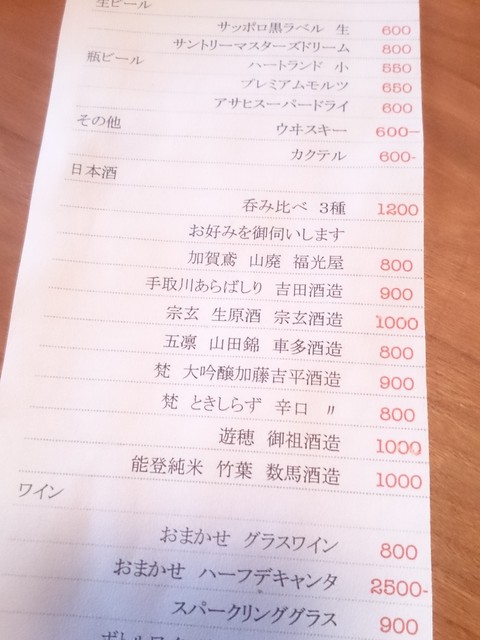 生ビール
サッポロ黒ラベル 生 600
サントリーマスターズドリーム 800
瓶ビール ハートランド 小 550
プレミアムモルツ 650
アサヒスーパードライ 600
その他 ウヰスキー 600—
カクテル 600-
日本酒
呑み比べ 3種 1200
お好みを御伺いします
加賀鳶 山廃 福光屋 800
手取川あらばしり 吉田酒造 900
宗玄 生原酒 宗玄酒造 1000
五凛 山田錦 車多酒造 800
梵 大吟醸加藤吉平酒造 900
梵 ときしらず 辛口 〃 800
遊穂 御祖酒造 1000
能登純米 竹葉 数馬酒造 1000
ワイン
おまかせ グラスワイン 800
おまかせ ハーフデキャンタ 2500-
スパークリンググラス 900